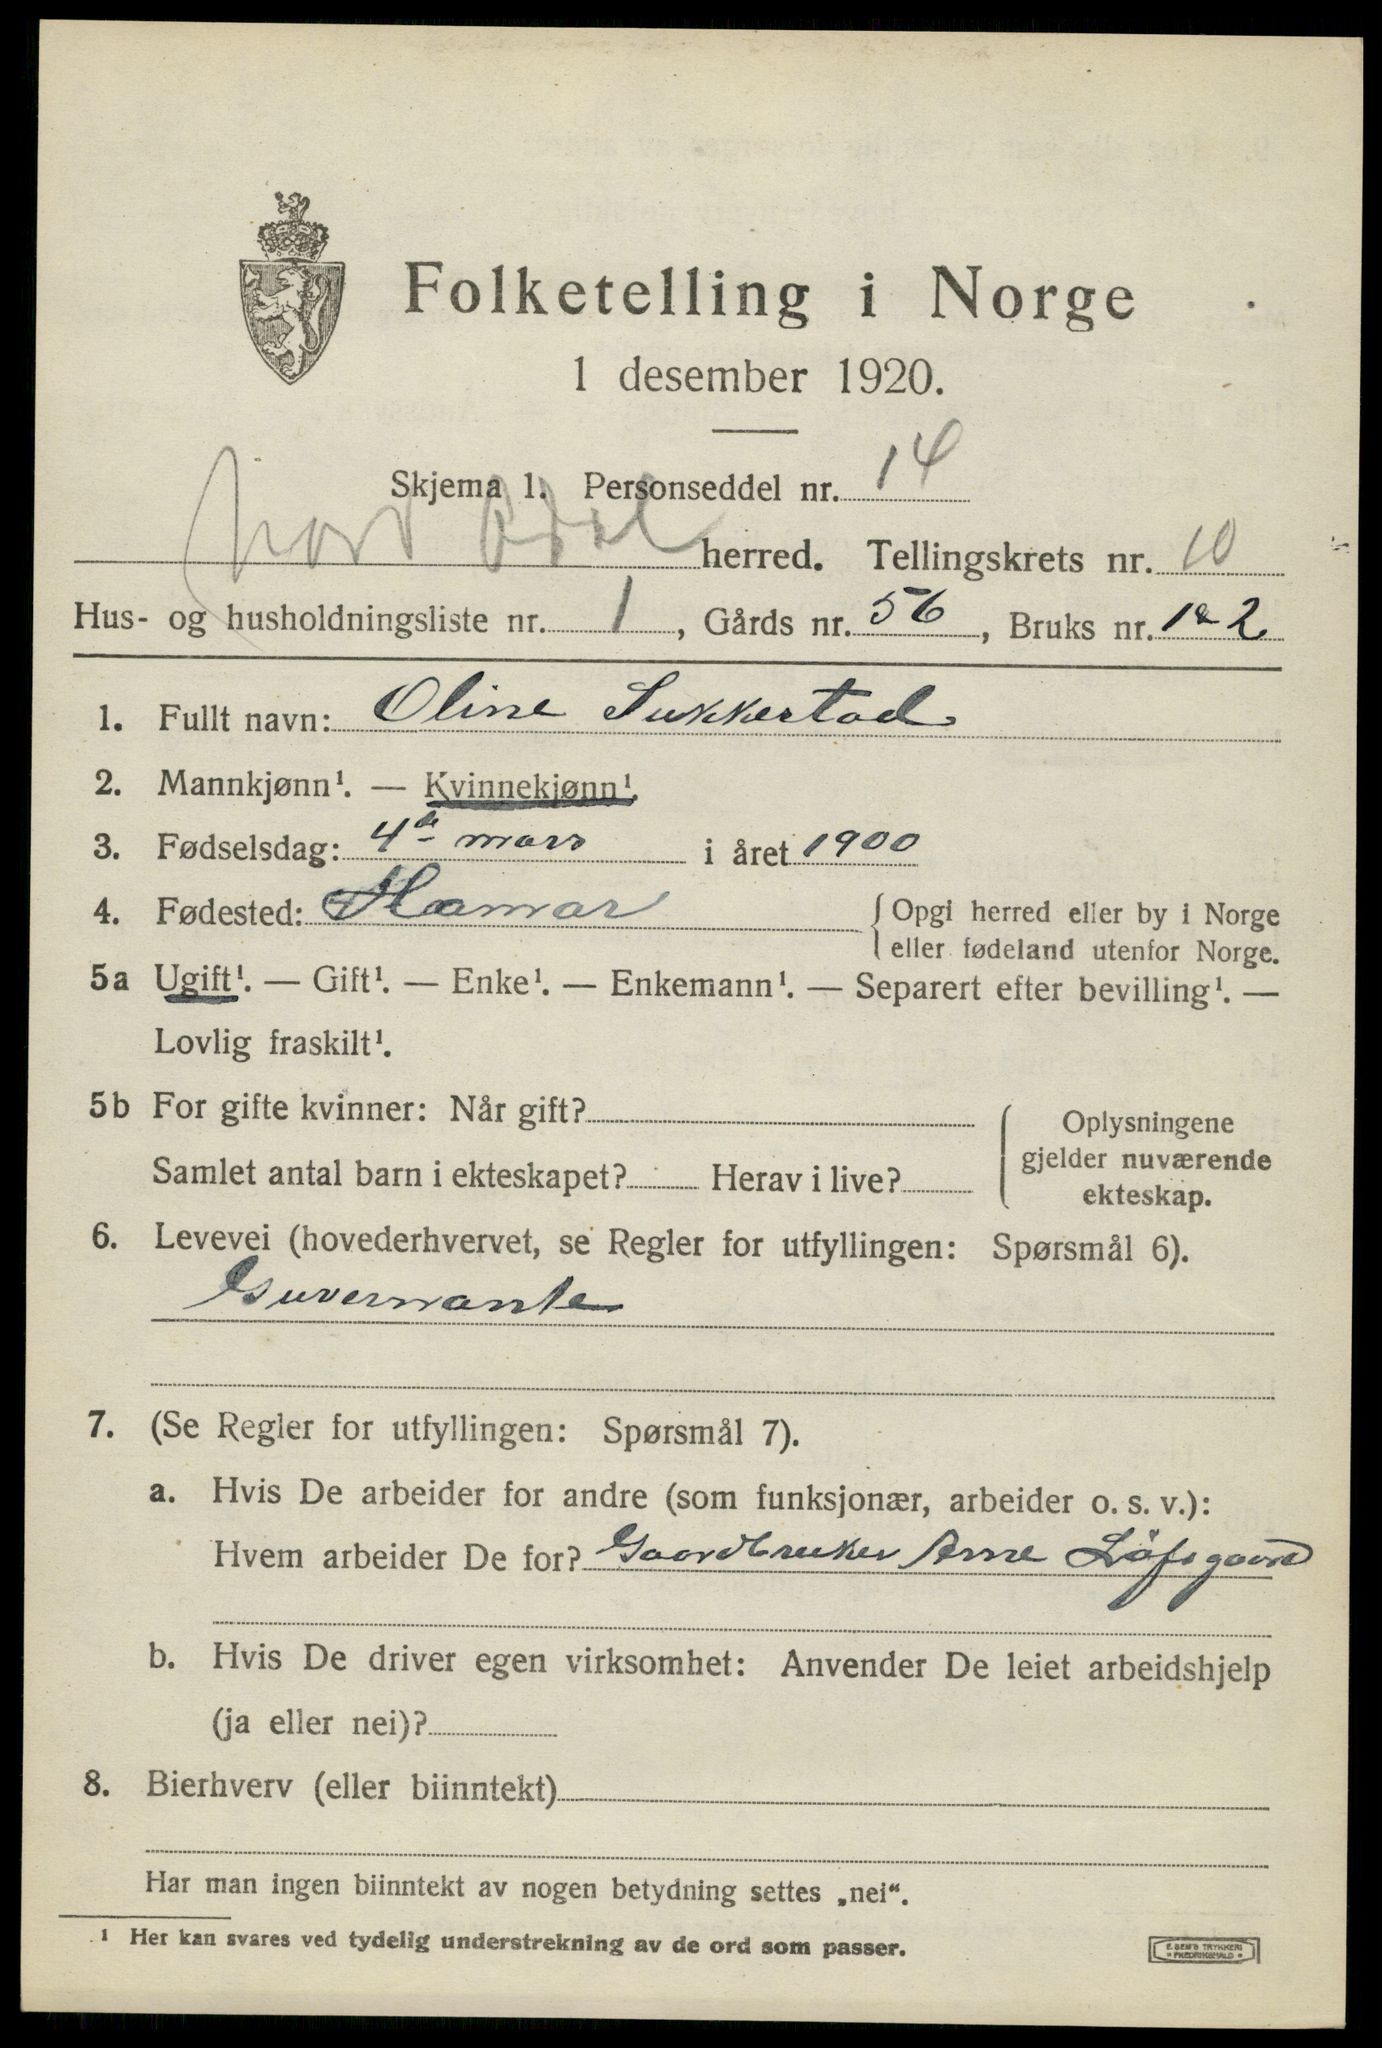 Folketelling i Norge
1 desember 1920.
Skjema 1. Personseddel nr. 14
Nord Odal herred. Tellingskrets nr. 10
Hus- og husholdningsliste nr. 1, Gårds nr. 56, Bruks nr. 1 & 2
1. Fullt navn: Oline Sukkestad
2. Mannkjønn¹. — Kvinnekjønn¹.
3. Fødselsdag: 4de mars i året 1900
4. Fødested: Hamar {Opgi herred eller by i Norge
eller fødeland utenfor Norge.
5a Ugift¹. — Gift¹. — Enke¹. — Enkemann¹. — Separert efter bevilling¹. —
Lovlig fraskilt¹.
5b For gifte kvinner: Når gift?
Samlet antal barn i ekteskapet? Herav i live?
Oplysningene
gjelder nuværende
ekteskap.
6. Levevei (hovederhvervet, se Regler for utfyllingen: Spørsmål 6).
Guvernante
7. (Se Regler for utfyllingen: Spørsmål 7).
a. Hvis De arbeider for andre (som funksjonær, arbeider o. s. v.):
Hvem arbeider De for? Gaardbruker Arne Löfsgaard
b. Hvis De driver egen virksomhet: Anvender De leiet arbeidshjelp
(ja eller nei)?
8. Bierhverv (eller biinntekt)
Har man ingen biinntekt av nogen betydning settes „nei“.
¹ Her kan svares ved tydelig understrekning av de ord som passer.
E. SEM'S TRYKKERI
* FREDRIKSHALD *